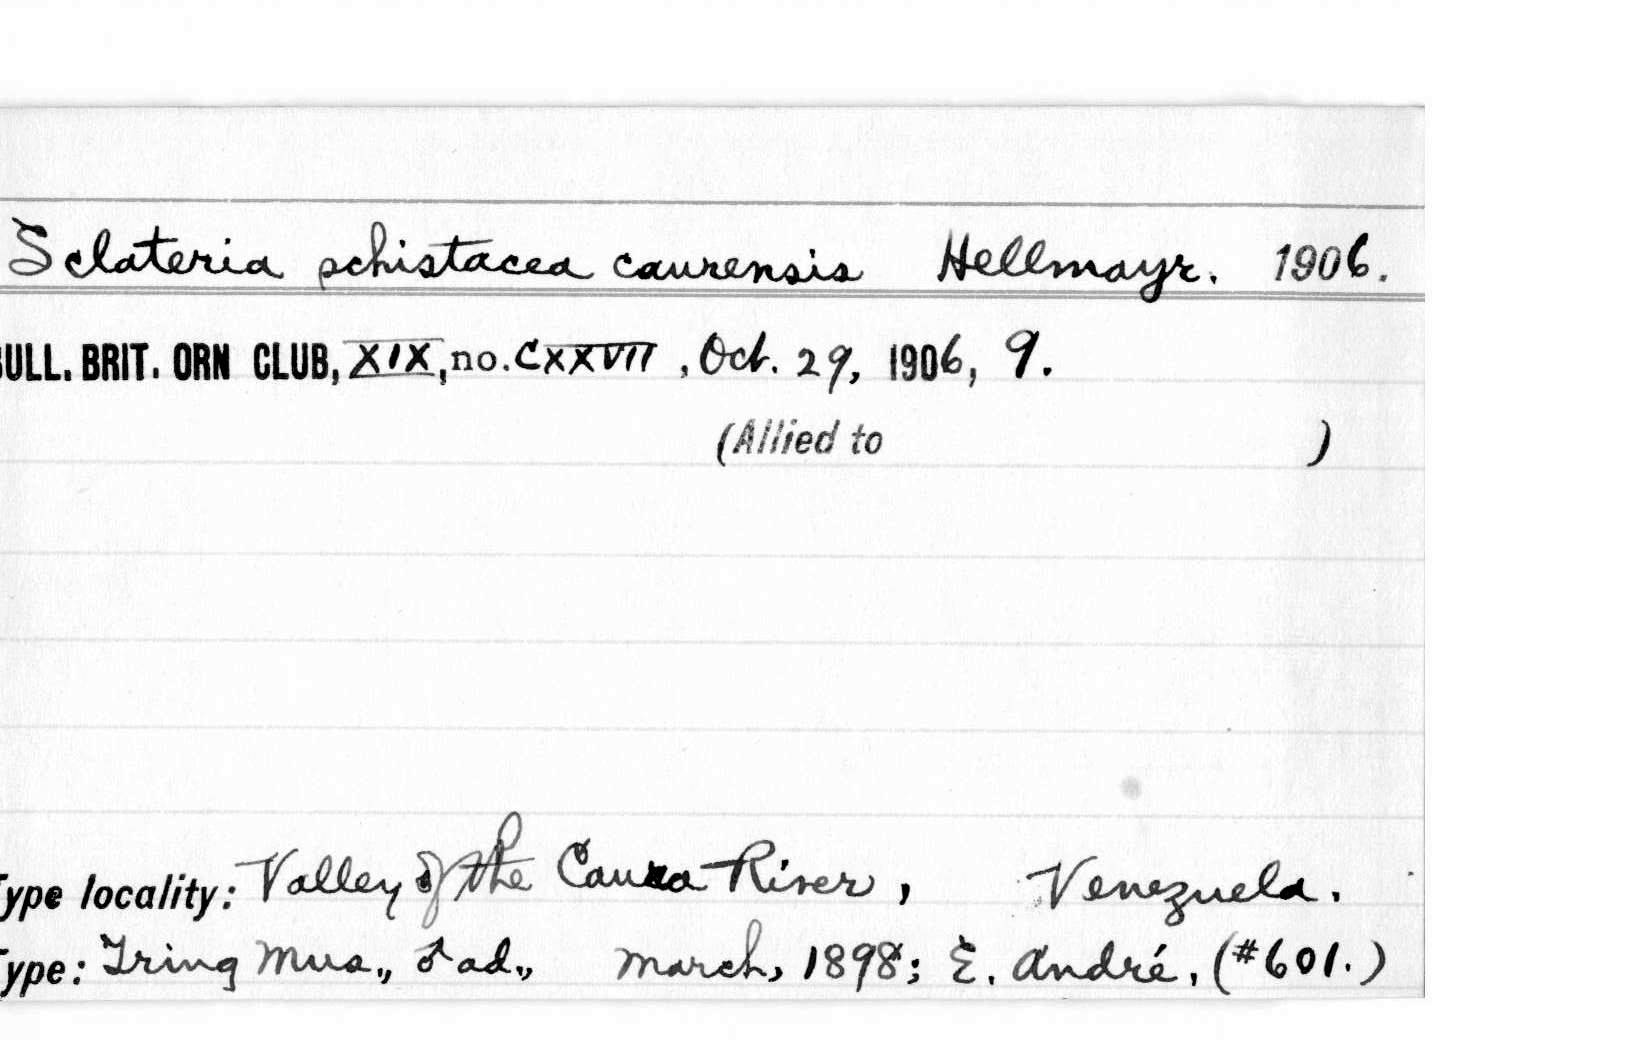 Sclateria schistacea caurensis Hellmayr. 1906.
BULL. BRIT. ORN CLUB, XIX, no. CXXVII, Oct. 29, 1906, 9.
(Allied to )
Type locality: Valley of the Caura River, Venezuela.
Type: Tring Mus., ♂ ad., March, 1898; E. André, (#601.)